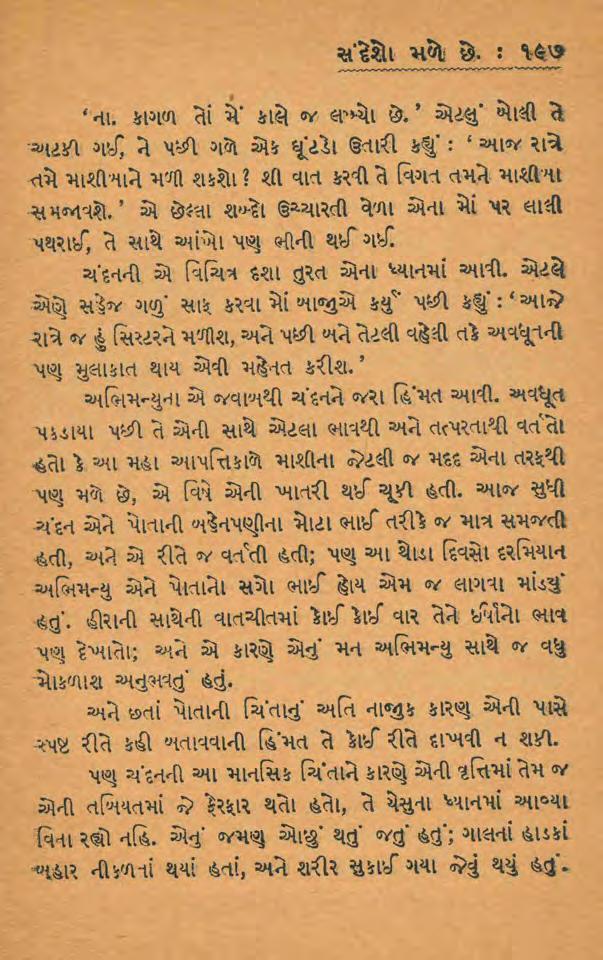 સંદેશો મળે છે. : ૧૯૭
‘ના. કાગળ તોં મેં કાલે જ લખ્યો છે.’ એટલું બોલી તે
અટકી ગઈ, ને પછી ગળે એક ઘૂંટડો ઉતારી કહ્યું : ‘આજ રાત્રે
તમે માશીમાને મળી શકશો ? શી વાત કરવી તે વિગત તમને માશીમા
સમજાવશે.’ એ છેલ્લા શબ્દો ઉચ્ચારતી વેળા એના મોં પર લાલી
પથરાઈ, તે સાથે આંખો પણ ભીની થઈ ગઈ.
ચંદનની એ વિચિત્ર દશા તુરત એના ધ્યાનમાં આવી. એટલે
એણે સહેજ ગળું સાફ કરવા મોં બાજુએ કર્યું પછી કહ્યું : ‘આજે
રાત્રે જ હું સિસ્ટરને મળીશ, અને પછી બને તેટલી વહેલી તકે અવધૂતની
પણ મુલાકાત થાય એવી મહેનત કરીશ.’
અભિમન્યુના એ જવાબથી ચંદનને જરા હિંમત આવી. અવધૂત
પકડાયા પછી તે એની સાથે એટલા ભાવથી અને તત્પરતાથી વર્તતો
હતો કે આ મહા આપત્તિકાળે માશીના જેટલી જ મદદ એના તરફથી
પણ મળે છે, એ વિષે એની ખાતરી થઈ ચૂકી હતી. આજ સુધી
ચંદન એને પોતાની બહેનપણીના મોટા ભાઈ તરીકે જ માત્ર સમજતી
હતી, અને એ રીતે જ વર્તતી હતી; પણ આ થોડા દિવસો દરમિયાન
અભિમન્યુ એને પોતાનો સગો ભાઈ હોય એમ જ લાગવા માંડ્યું
હતું. હીરાની સાથેની વાતચીતમાં કોઈ કોઈ વાર તેને ઈર્ષાનો ભાવ
પણ દેખાતો; અને એ કારણે એનું મન અભિમન્યુ સાથે જ વધુ
મોકળાશ અનુભવતું હતું.
અને છતાં પોતાની ચિંતાનું અતિ નાજુક કારણ એની પાસે
સ્પષ્ટ રીતે કહી બતાવવાની હિંમત તે કોઈ રીતે દાખવી ન શકી.
પણ ચંદનની આ માનસિક ચિંતાને કારણે એની વૃત્તિમાં તેમ જ
એની તબિયતમાં જે ફેરફાર થતો હતો, તે યેસુના ધ્યાનમાં આવ્યા
વિના રહ્યો નહિ. એનું જમણ ઓછું થતું જતું હતું; ગાલનાં હાડકાં
બહાર નીકળતાં થયાં હતાં, અને શરીર સુકાઈ ગયા જેવું થયું હતું.